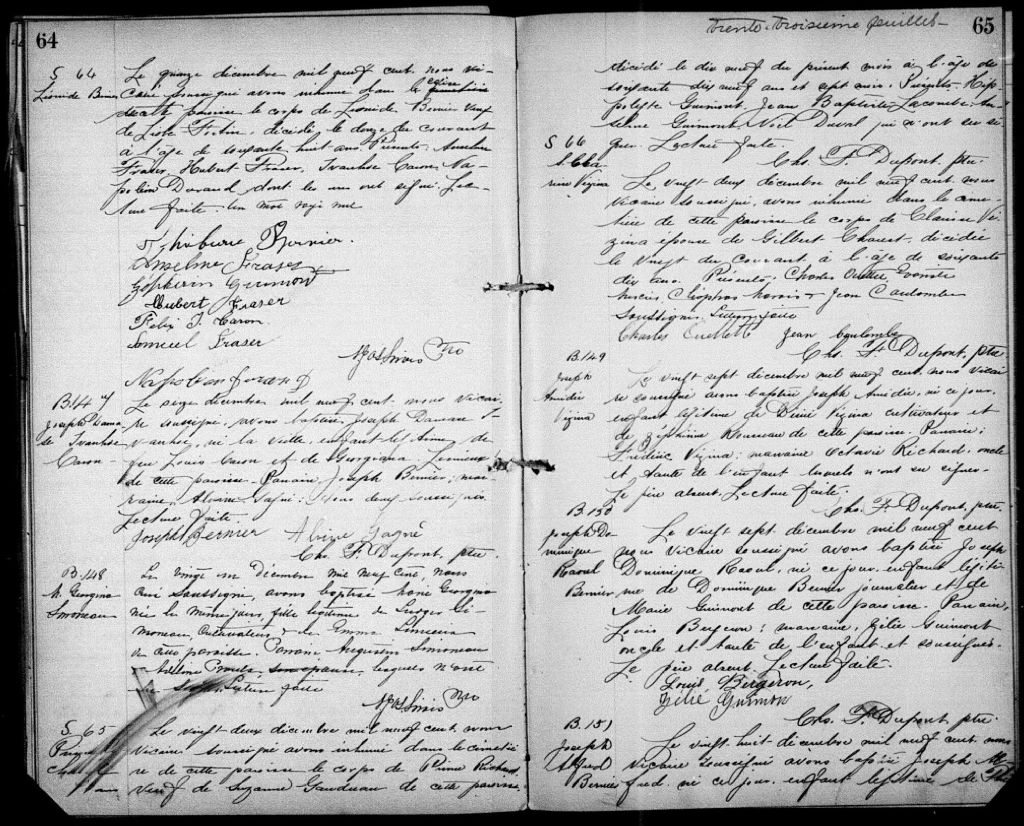 64
S 64
Léonide Bernier
Le quinze décembre mil neuf cent nous vi-
caire soussigné avons inhumé dans l'église
paroisse le corps de Léonide Bernier veuf
de décédé le douze du courant
à l'âge de soixante huit ans. Présents: Anselme
Fraser, Hubert Fraser, Ivanhoe Caron, Na-
poléon Durand dont les uns ont signé. Lec-
ture faite. Un mot rayé nul
Bernier.
Anselme Fraser
Zéphirin Guimont
Hubert Fraser
Felix J. Caron.
Samuel Fraser
Ptre
Napoléon Durand
B.147
Joseph Dama-
se Ivanhoe
Caron
Le seize décembre mil neuf cent nous vicai-
re soussigné, avons baptisé Joseph Damase I-
vanhoé, né la veille, enfant légitime de
feu Louis Caron et de Georgiana Lemieux
de cette paroisse. Parrain, Joseph Bernier; mar-
raine, Alvine Gagné: tous deux soussignés.
Lecture faite.
Joseph Bernier Alvine Gagné
Chs. F. Dupont, ptre.
B.148
M. Georgina
Simoneau
Le vingt un décembre mil neuf cent, nous
curé soussigné, avons baptisé Marie Georgina
née le même jour, fille légitime de Si-
moneau, cultivateur, & de Emma Lemieux
de cette paroisse. Parrain Augustin Simoneau
Adeline lesquels n'ont
Lecture faite
Ptre
S 65
Le vingt deux décembre mil neuf cent nous
vicaire soussigné avons inhumé dans le cimetiè-
re de cette paroisse le corps de Pierre Richard
veuf de Suzanne Gaudreau de cette paroisse,
trente-troisième feuillet
65
décédé le dix neuf du présent mois à l'âge de
soixante dix neuf ans et sept mois. Présents: Hip-
polyte Guimont, Jean Baptiste Lacombe, An-
selme Guimont, Noël Duval qui n'ont su si-
gner. Lecture faite.
Chs. F. Dupont, ptre.
S 66
rine Vézina
Le vingt deux décembre mil neuf cent nous
vicaire soussigné, avons inhumé dans le cime-
tière de cette paroisse le corps de Clarisse Vé-
zina épouse de Gilbert Chouest, décédée
le vingt du courant à l'âge de soixante
dix ans. Présents: Charles Ouellet,
Cléophas & Jean Coulombe
soussignés. Lecture faite
Charles Ouellett Jean Coulombe
Chs. F. Dupont, ptre
B.149
Joseph
Amédée
Vézina
Le vingt sept décembre mil neuf cent nous vicai-
re soussigné avons baptisé Joseph Amédée, né ce jour,
enfant légitime de Vézina cultivateur et
de Zéphirine de cette paroisse. Parrain:
Frédéric Vézina: marraine Octavie Richard: oncle
et tante de l'enfant lesquels n'ont su signer.
Le père absent. Lecture faite.
Chs. F. Dupont, ptre.
B.150
Joseph Do-
minique
Raoul
Bernier
Le vingt sept décembre mil neuf cent
nous vicaire soussigné avons baptisé Joseph
Dominique Raoul, né ce jour, enfant légiti-
me de Dominique Bernier journalier et de
Marie Guimont de cette paroisse. Parrain,
Louis Bergeron: marraine, Zélie Guimont
oncle et tante de l'enfant et soussignés.
Le père absent. Lecture faite.
Louis Bergeron,
Zélié Guimon
Chs. F. Dupont, ptre.
B.151
Joseph
Alfred
Bernier
Le vingt huit décembre mil neuf cent nous
vicaire soussigné avons baptisé Joseph Al-
fred, né ce jour, enfant légitime de